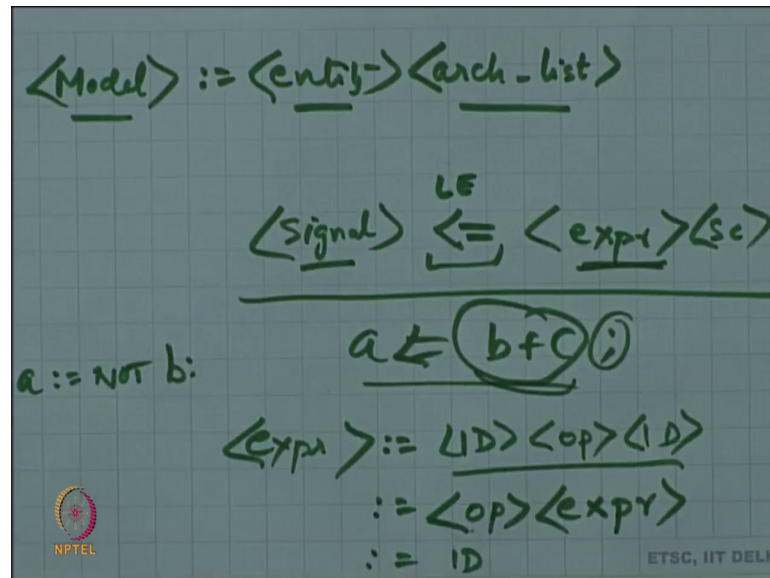 <Model> := <entity> <arch_list>
LE
<signal> <= <expr> <sc>
a <= b+c ;
a := NOT b:
<expr> := <ID> <op> <ID>
:= <op> <expr>
:= ID
NPTEL
ETSC, IIT DELH